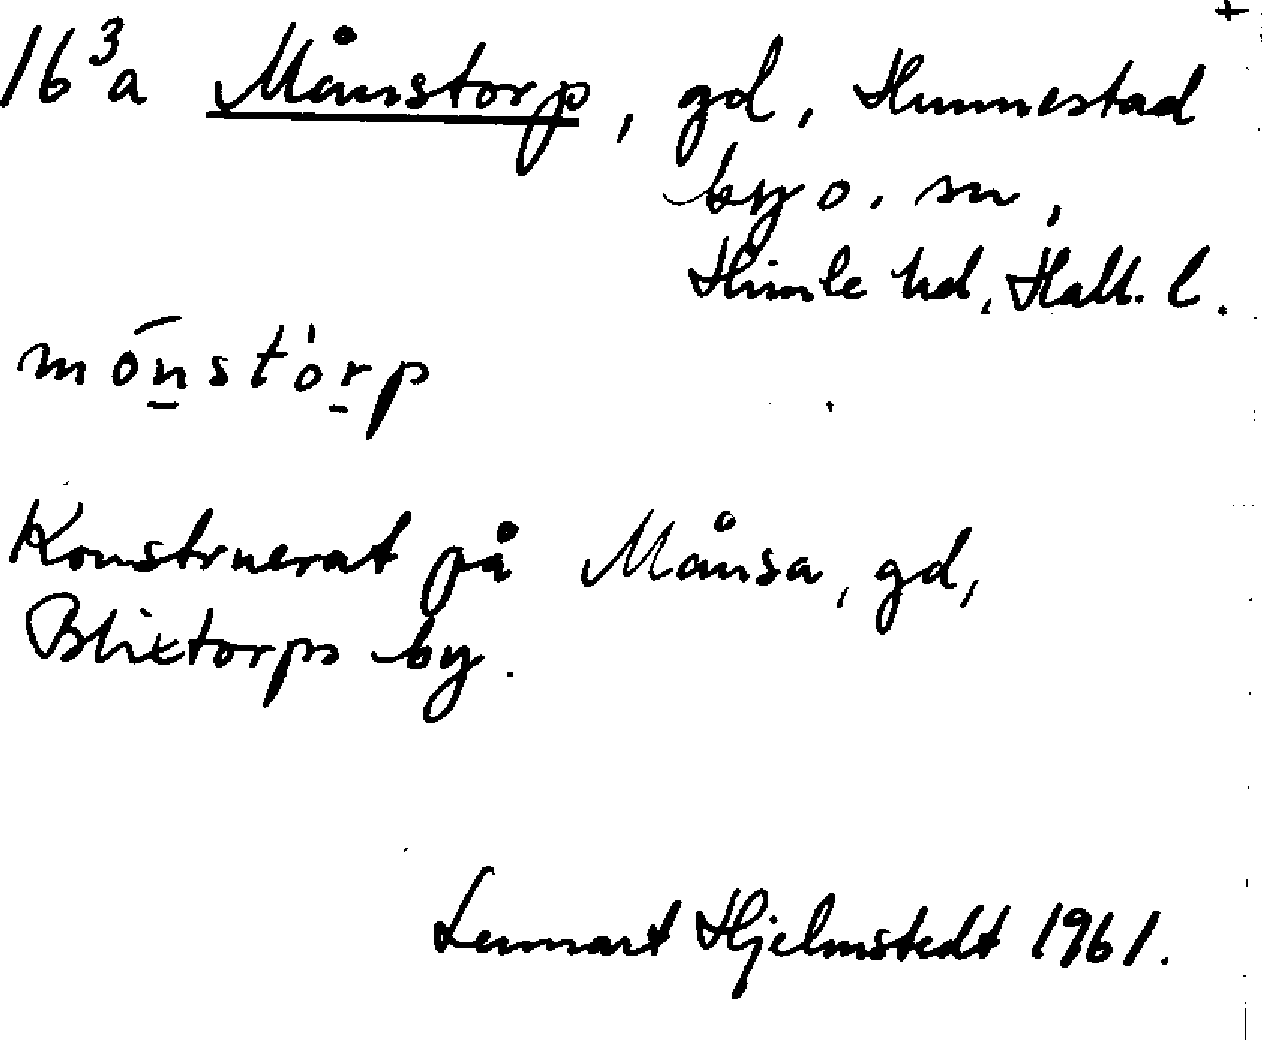 16³a Månstorp, gd, Hunnestad
by o. sn,
Himle hd, Hall. l.
mōn̲st'or̲p
Konstruerat på Månsa, gd,
Blixtorps by.
Lennart Hjelmstedt 1961.